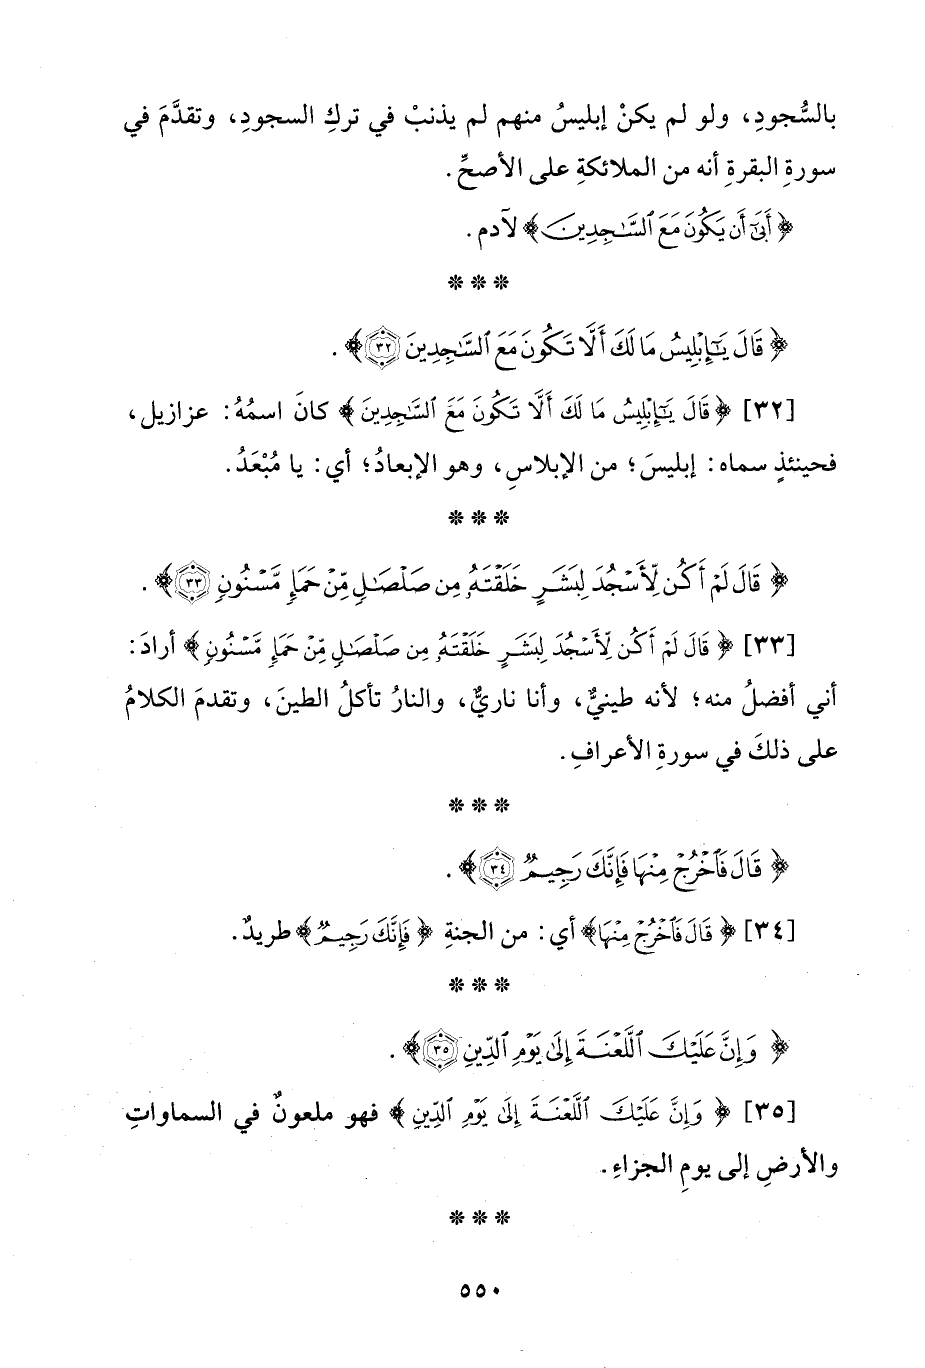 بالسُّجودِ، ولو لم يكنْ إبليسُ منهم لم يذنبْ في تركِ السجودِ، وتقدَّمَ في
سورةِ البقرةِ أنه من الملائكةِ على الأصحِّ.
﴿أَبَىٰٓ أَن يَكُونَ مَعَ ٱلسَّـٰجِدِينَ﴾ لآدم.
* * *
﴿قَالَ يَـٰٓإِبْلِيسُ مَا لَكَ أَلَّا تَكُونَ مَعَ ٱلسَّـٰجِدِينَ ٣٢﴾.
[٣٢] ﴿قَالَ يَـٰٓإِبْلِيسُ مَا لَكَ أَلَّا تَكُونَ مَعَ ٱلسَّـٰجِدِينَ﴾ كانَ اسمُهُ: عزازيل،
فحينئذٍ سماه: إبليسَ؛ من الإبلاسِ، وهو الإبعادُ؛ أي: يا مُبْعَدُ.
* * *
﴿قَالَ لَمْ أَكُن لِّأَسْجُدَ لِبَشَرٍ خَلَقْتَهُۥ مِن صَلْصَـٰلٍ مِّنْ حَمَإٍ مَّسْنُونٍ ٣٣﴾.
[٣٣] ﴿قَالَ لَمْ أَكُن لِّأَسْجُدَ لِبَشَرٍ خَلَقْتَهُۥ مِن صَلْصَـٰلٍ مِّنْ حَمَإٍ مَّسْنُونٍ﴾ أرادَ:
أني أفضلُ منه؛ لأنه طينيٌّ، وأنا ناريٌّ، والنارُ تأكلُ الطينَ، وتقدمَ الكلامُ
على ذلكَ في سورةِ الأعرافِ.
* * *
﴿قَالَ فَٱخْرُجْ مِنْهَا فَإِنَّكَ رَجِيمٌ ٣٤﴾.
[٣٤] ﴿قَالَ فَٱخْرُجْ مِنْهَا﴾ أي: من الجنةِ ﴿فَإِنَّكَ رَجِيمٌ﴾ طريدٌ.
* * *
﴿وَإِنَّ عَلَيْكَ ٱللَّعْنَةَ إِلَىٰ يَوْمِ ٱلدِّينِ ٣٥﴾.
[٣٥] ﴿وَإِنَّ عَلَيْكَ ٱللَّعْنَةَ إِلَىٰ يَوْمِ ٱلدِّينِ﴾ فهو ملعونٌ في السماواتِ
والأرضِ إلى يومِ الجزاءِ.
* * *
٥٥٠